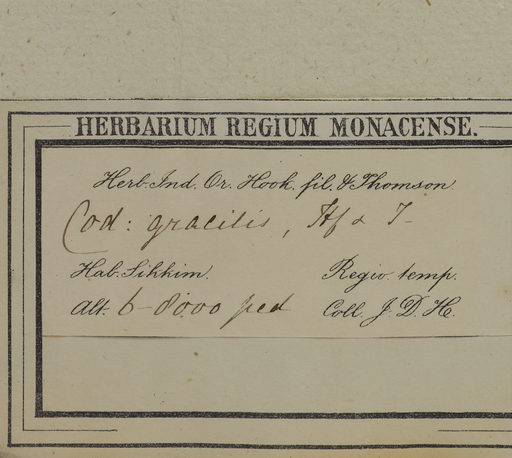 HERBARIUM REGIUM MONACENSE.
Herb. Ind. Or. Hook. fil. & Thomson.
Cod: gracilis, Hf & T-
Hab. Sikkim. Regio. temp.
Alt. 6-8000 ped Coll. J. D. H.